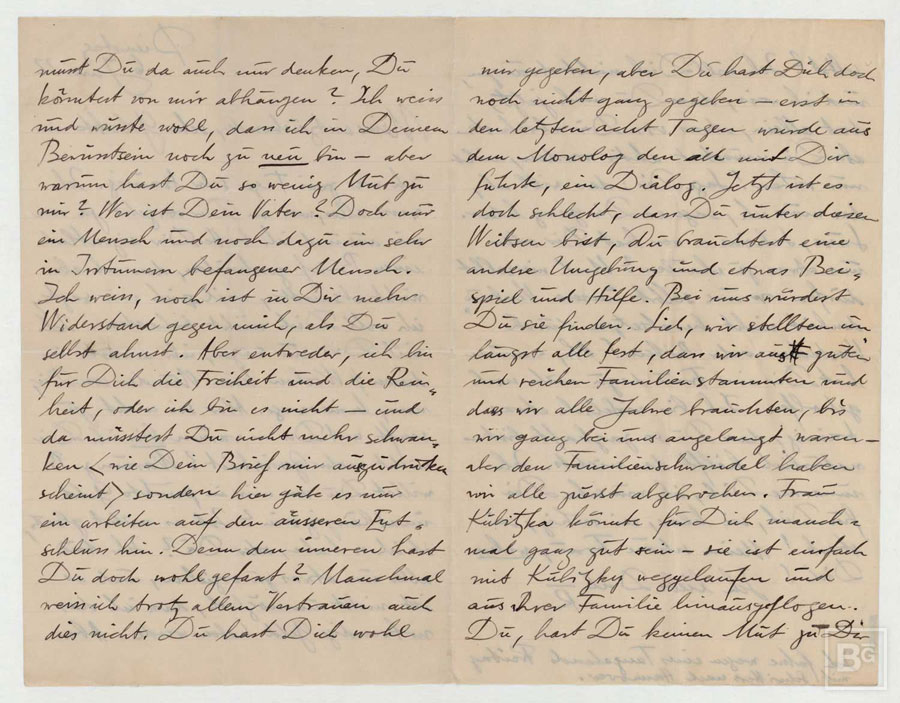 musst Du da auch nur denken, Du
könntest von mir abhängen? Ich weiss
und wusste wohl, dass ich in Deinem
Bewusstsein noch zu neu bin – aber
warum hast Du so wenig Mut zu
mir? Wer ist Dein Vater? Doch nur
ein Mensch und noch dazu ein sehr
in Irrtümern befangener Mensch.
Ich weiss, noch ist in Dir mehr
Widerstand gegen mich, als Du
selbst ahnst. Aber entweder, ich bin
für Dich die Freiheit und die Rein„
heit, oder ich bin es nicht – und
da müsstest Du nicht mehr schwan„
ken < wie Dein Brief mir auszudrücken
scheint > sondern hier gäbe es nur
ein arbeiten auf den äusseren Ent„
schluss hin. Denn den inneren hast
Du doch wohl gefasst? Manchmal
weiss ich trotz allem Vertrauen auch
dies nicht. Du hast Dich wohl
mir gegeben, aber Du hast Dich doch
noch nicht ganz gegeben – erst in
den letzten acht Tagen wurde aus
dem Monolog den ich mit Dir
führte, ein Dialog. Jetzt ist es
doch schlecht, dass Du unter diesen
Weibsen bist, Du brauchtest eine
andere Umgebung und etwas Bei„
spiel und Hilfe. Bei uns würdest
Du sie finden. Sieh, wir stellten un„
längst alle fest, dass wir aus guten
und reichen Familien stammten und
dass wir alle Jahre brauchten, bis
wir ganz bei uns angelangt waren –
aber den Familienschwindel haben
wir alle zuerst abgebrochen. Frau
Kubitzka könnte für Dich manch=
mal ganz gut sein – sie ist einfach
mit Kubitzky weggelaufen und
aus ihrer Familie hinausgeflogen.
Du, hast Du keinen Mut zu Dir
BG